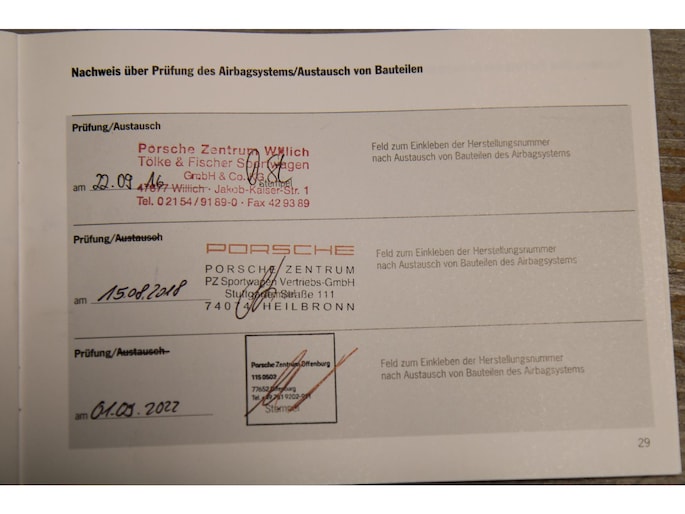 Nachweis über Prüfung des Airbagsystems/Austausch von Bauteilen
Prüfung/Austausch
Porsche Zentrum Willich
Tölke & Fischer Sportwagen
GmbH & Co. KG
47877 Willich · Jakob-Kaiser-Str. 1
Tel. 0 21 54 / 91 89-0 · Fax 42 93 89
am 22.09 16
Stempel
Feld zum Einkleben der Herstellungsnummer
nach Austausch von Bauteilen des Airbagsystems
Prüfung/Austausch
PORSCHE
PORSCHE ZENTRUM
PZ Sportwagen Vertriebs-GmbH
Stuttgarter Straße 111
74074 HEILBRONN
am 15.08.2018
Feld zum Einkleben der Herstellungsnummer
nach Austausch von Bauteilen des Airbagsystems
Prüfung/Austausch
Porsche Zentrum Offenburg
115 0503
77652 Offenburg
Tel.
Stempel
am 01.09.2022
Feld zum Einkleben der Herstellungsnummer
nach Austausch von Bauteilen des Airbagsystems
29